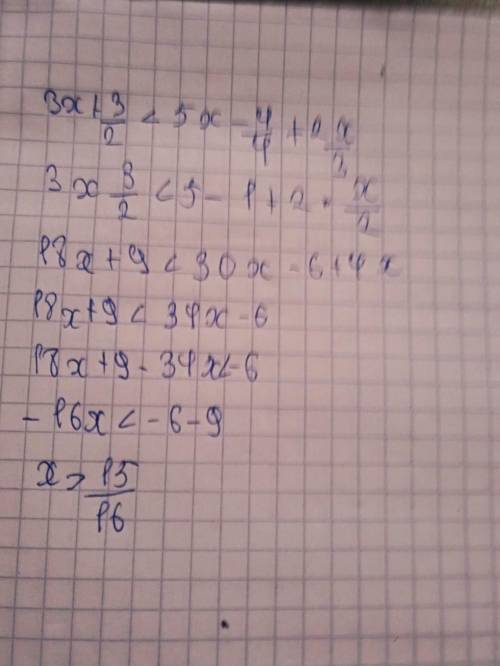 3x + 3/2 < 5x - 4/4 + 2 x/2
3x 3/2 < 5 - 1 + 2 · x/2
18x + 9 < 30x - 6 + 4x
18x + 9 < 34x - 6
18x + 9 - 34x < -6
- 16x < - 6 - 9
x > 15/16